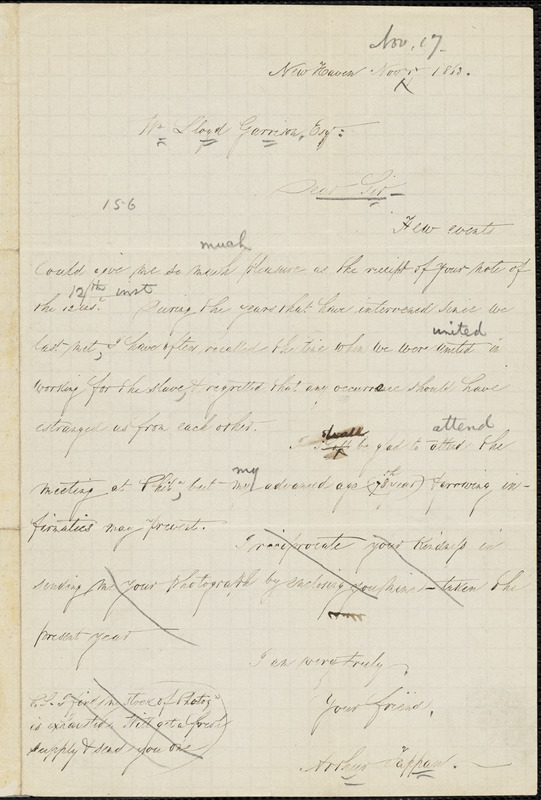 Nov. 17.
New Haven Nov 1863.
Wm Lloyd Garrison, Esq:
Dear Sir
156
Few events
much
could give me so much pleasure as the receipt of your note of
12th inst
the 12 ins. During the years that have intervened since we
united
last met, I have often recalled the time when we were united in
working for the slave, & regretted that any occurrence should have
estranged us from each other.
shall attend
I be glad to attend the
my
meeting at Phila, but my advanced age (78th year) & growing in-
firmities may prevent.
I reciprocate your kindness in
sending me your photograph by enclosing you mine — taken the
present year
I am very truly,
Your friend,
Arthur Tappan.
P.S. I find my stock of Photogs
is exhausted. Will get a fresh
supply & send you one